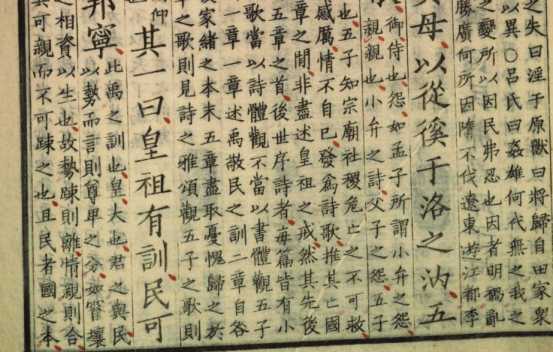 之失曰淫于原獸曰將歸自田家衆
以異○呂氏曰姦雄何代無之我之
之釁所以因民弗忍也因者明禍亂
勝廣何所因隋不伐遼東遊江都李
其母以從徯于洛之汭五
御侍也怨如孟子所謂小弁之怨
親親也小弁之詩父子之怨五子
也五子知宗廟社稷危亡之不可救
感厲情不自已發爲詩歌推其亡國
章之間非盡述皇祖之戒然其先後
五章之首後世序詩者每篇皆有小
歌當以詩體觀不當以書體觀五子
一章一章述禹敬民之訓二章自谷
家緒之本末五章盡取憂愧歸之於
之歌則見詩之雅頌觀五子之歌則
仰
其一曰皇祖有訓民可
邦寧
此禹之訓也皇大也君之與民
以勢而言則尊卑之分如霄壤
之相資以生也故勢疎則離情親則合
其可親而不可疎之也且民者國之本